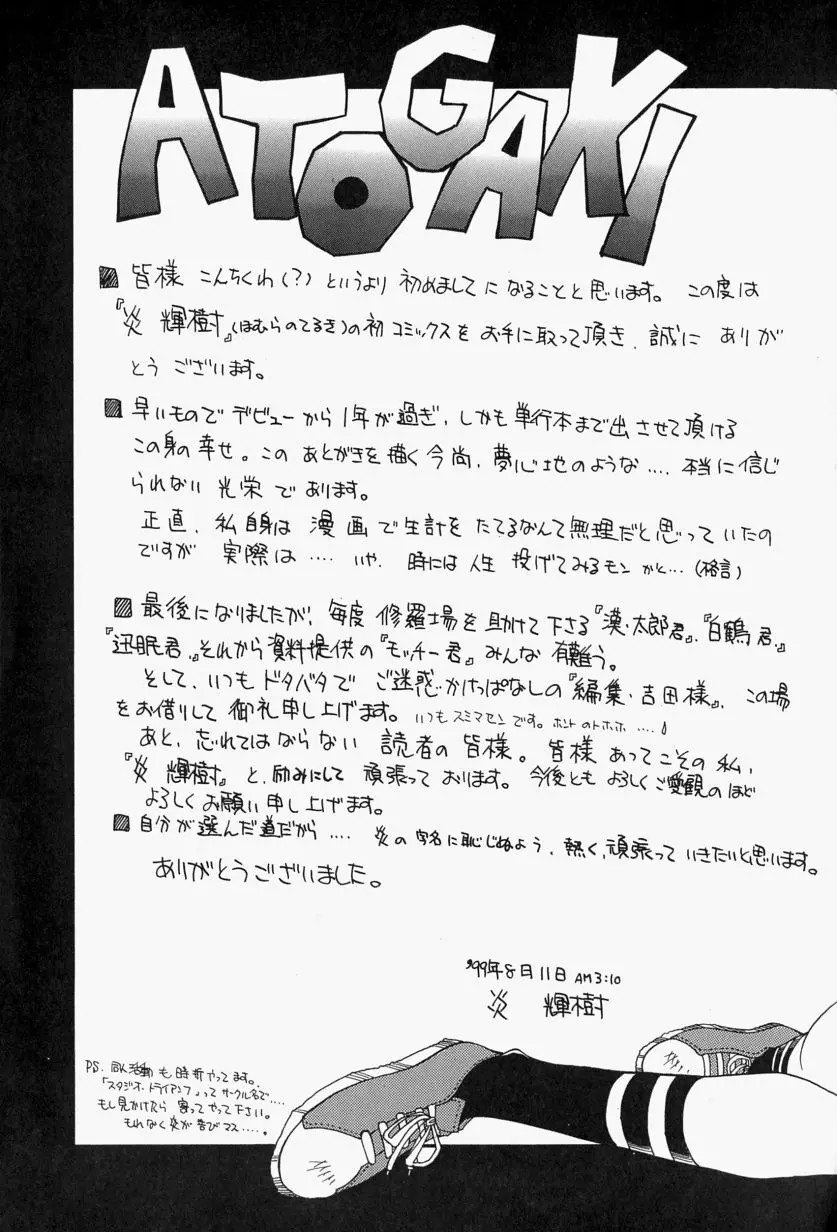 ATOGAKI
■皆様 こんちくわ(?)というより 初めましてになることと思います。 この度は
『炎 輝樹』(ほむらのてるき)の初コミックスを お手に取って頂き、誠に ありが
とう ございます。
■早いもので デビューから1年が過ぎ、しかも単行本まで出させて頂ける
この身の幸せ。この あとがきを描く今尚、夢心地のような‥‥ 本当に信じ
られない 光栄 であります。
正直、私自身は 漫画で生計を たてるなんて無理だと思っていたの
ですが 実際は‥‥ いや、 時には人生 投げてみるモン かと…(格言)
■最後になりましたが、毎度 修羅場を助けて下さる『漢・太郎君』、『白鶴君』
『迅眠君』、それから資料提供の『モッチー君』みんな 有難う。
そして、いつも ドタバタで ご迷惑かけっぱなしの『編集・吉田様』、この場
をお借りして 御礼申し上げます。いつもスミマセンです。ホントのトホホ‥‥
あと、忘れてはならない 読者の皆様。皆様あってこその私、
『炎 輝樹』と、励みにして 頑張っております。今後とも よろしくご愛観のほど
よろしくお願い申し上げます。
■自分が選んだ道だから‥‥ 炎の字名に恥じぬよう、熱く、頑張って いきたいと思います。
ありがとうございました。
'99年8月11日 AM3:10
炎 輝樹
PS. 同人活動も時折やってます。
「スタジオ・トライアンフ」って サークル名で‥‥
もし見かけたら 寄ってやって下さい。
もれなく炎が喜びマス‥‥。